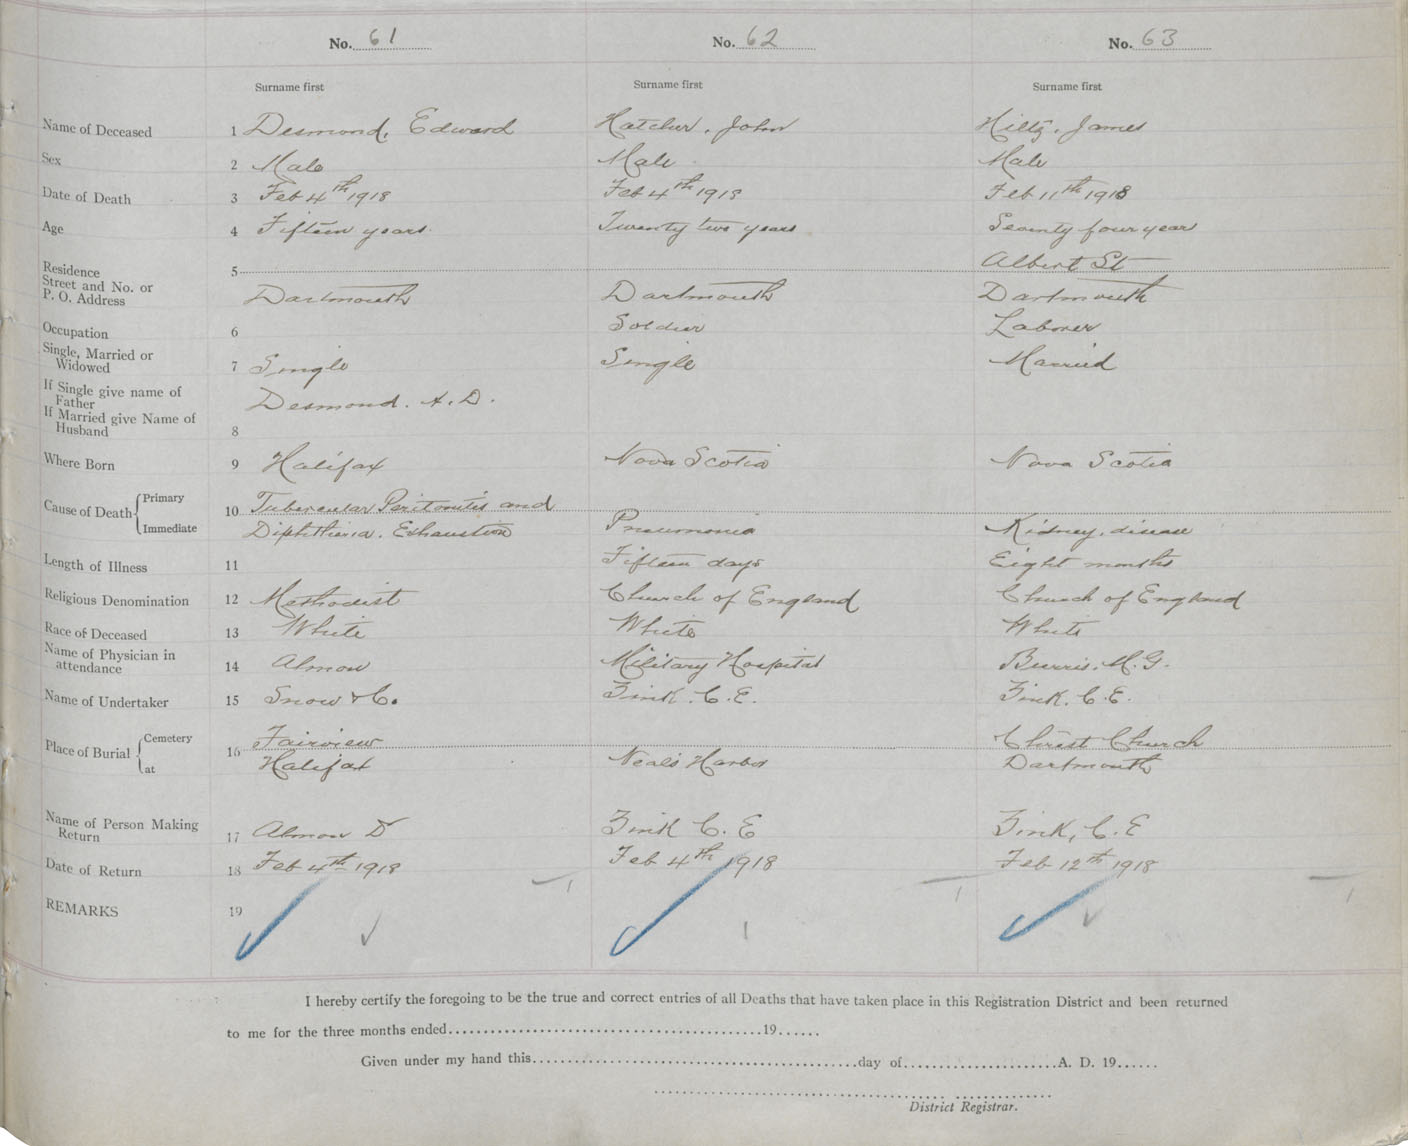 No. 61 No. 62 No. 63
Surname first Surname first Surname first
Name of Deceased 1 Desmond, Edward Hatcher, John Hiltz, James
Sex 2 Male Male Male
Date of Death 3 Feb 4th 1918 Feb 4th 1918 Feb 11th 1918
Age 4 Fifteen years Twenty two years Seventy four year
Residence 5 Albert St
Street and No. or
P. O. Address Dartmouth Dartmouth Dartmouth
Occupation 6 Soldier Laborer
Single, Married or
Widowed 7 Single Single Married
If Single give name of
Father Desmond. A. D.
If Married give Name of
Husband 8
Where Born 9 Halifax Nova Scotia Nova Scotia
Cause of Death Primary 10 Tubercular Peritonitis and
Immediate Diphtheria. Exhaustion Pneumonia Kidney disease
Length of Illness 11 Fifteen days Eight months
Religious Denomination 12 Methodist Church of England Church of England
Race of Deceased 13 White White White
Name of Physician in
attendance 14 Almon Military Hospital Burris. M. G.
Name of Undertaker 15 Snow & Co. Zink. C. E. Zink. C. E.
Place of Burial Cemetery 16 Fairview Christ Church
at Halifax Neals Harbor Dartmouth
Name of Person Making
Return 17 Almon D Zink C. E Zink, C. E
Date of Return 18 Feb 4th 1918 Feb 4th 1918 Feb 12th 1918
REMARKS 19
I hereby certify the foregoing to be the true and correct entries of all Deaths that have taken place in this Registration District and been returned
to me for the three months ended 19
Given under my hand this day of A. D. 19
District Registrar.